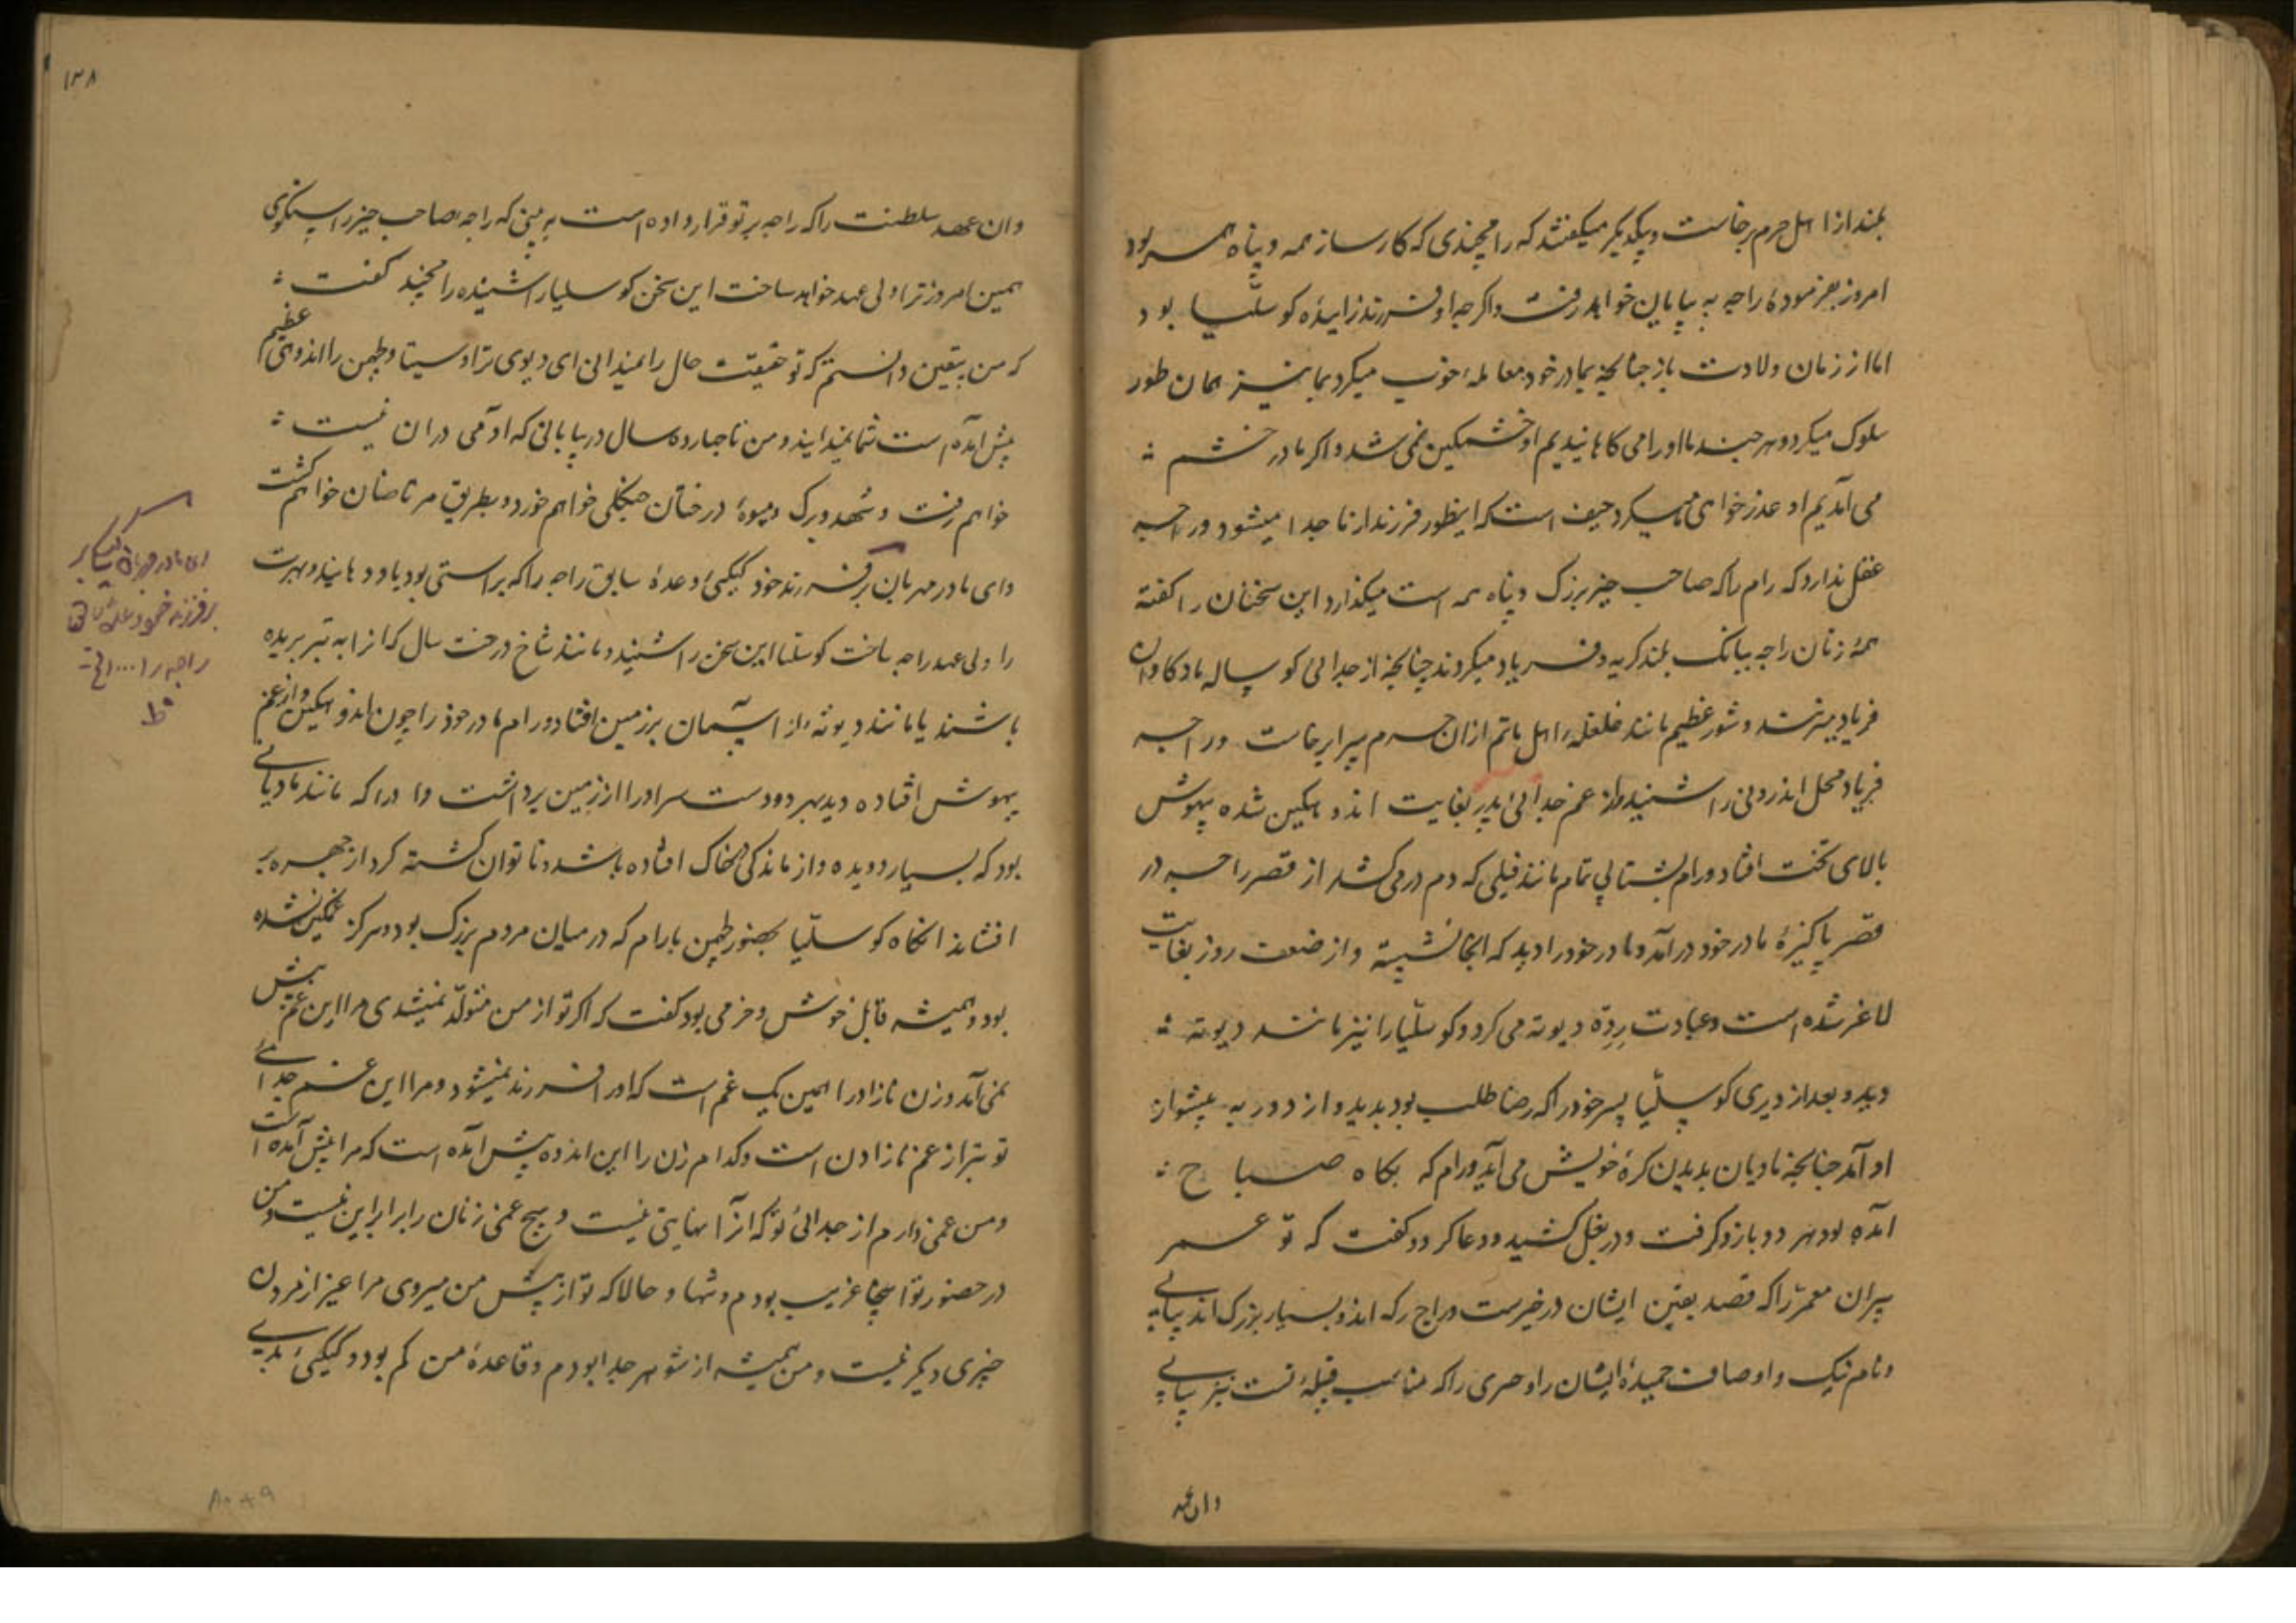 بلند از اهل حرم برخاست و بیکدیگر میگفتند که رامچندی که کارساز همه و پناه همه بود
امروز بفرمودهٔ راجه به بیابان خواهد رفت و اگرچه او فرزند زاییدهٔ کوسلّیا بود
اما از زمان ولادت باز چنانچه بمادر خود معاملهٔ خوب میکرد بما نیز همان طور
سلوک میکرد و هر چند ما او را می کاهانیدیم او خشمگین نمی شد و اگر ما در خشم
می آمدیم او عذر خواهی میکرد حیف است که اینطور فرزند از ما جدا میشود و راجه
عقل ندارد که رام را که صاحب چیز بزرگ و پناه همه است میگذارد این سخنان را گفته
همهٔ زنان راجه ببانگ بلند گریه و فریاد میکردند چنانچه از جدائی گوساله ماده گاوان
فریاد میزنند و شور عظیم مانند غلغلهٔ اهل ماتم از ان حرم سرا برخاست و راجه
فریاد محل اندرونی را شنید و از غم جدائی پدر بغایت اندوهگین شده بیهوش
بالای تخت افتاد و رام بشتابی تمام مانند فیلی که دم در می کشد از قصر راجه در
قصر پاکیزهٔ مادر خود درآمد و مادر خود را دید که انجا نشسته و از ضعف روزه بغایت
لاغر شده است و عبادت دیوته می کرد و کوسلّیا را نیز مانند دیوته
دید و بعد از دیری کوسلّیا پسر خود را که رضا طلب بود بدید و از دور به پیشواز
او آمد چنانچه مادیان بدیدن کرهٔ خویش می آید و رام که بگاه صباح
آمده بود هر دو بازو گرفت و در بغل کشید و دعا کرد و گفت که تو عمر
پیران معمر را که قصد یقین ایشان در خیرست و راج رکه اند و بسیار بزرگ اند بیابی
و نام نیک و اوصاف حمیدهٔ ایشان را و خری را که مناسب قبیلهٔ تست نیز بیابی
وان عهد
۱۳۸
وان عهد سلطنت را که راجه بر تو قرار داده است به بینی که راجه صاحب چیز راستگوی
همین امروز ترا ولی عهد خواهد ساخت این سخن کوسلیا را شنیده رامچند گفت
که من بیقین دانستم که تو حقیقت حال را نمیدانی ای دیوی ترا و سیتا و لچمن را اندوهی عظیم
پیش آمده است شما نمیدانید و من تا چهارده سال در بیابانی که آدمی دران نیست
خواهم رفت و شهد و برگ و میوهٔ درختان جنگلی خواهم خورد و بطریق مرتاضان خواهم گشت
و ای مادر مهربان بر فرزند خود کیکئی وعدهٔ سابق راجه را که براستی بود یاد دهانید و بهرت
را ولی عهد راجه ساخت کوسلیا این سخن را شنید و مانند شاخ درخت سال که انرا به تبر بریده
باشند یا مانند دیوته از آسمان بر زمین افتاد و رام مادر خود را چون اندوهگین و از غم
بیهوش افتاده دید بهر دو دست سر او را از زمین برداشت و او را که مانند مادیانی
بود که بسیار دویده و از ماندگی بخاک افتاده باشد و ناتوان گشته گرد از چهره بر
افشاند انگاه کوسلّیا بحضور لچمن با رام که در میان مردم بزرگ بود و هرگز غمگین نشده
بود و همیشه قابل خوش و خرمی بود گفت که اگر تو از من متولد نمیشدی مرا این غم پیش
نمی آمد و زن نازاد را همین یک غم است که او را فرزند نمیشود و مرا این غم جدائی
تو بتر از غم نازادن است و کدام زن را این اندوه پیش آمده است که مرا پیش آمده است
و من غمی دارم از جدائی تو که آنرا نهایتی نیست و هیچ غمی زنان را برابر این نیست و من
در حضور تو اینجا غریب بودم و تنها و حالا که تو از پیش من میروی مرا غیر از مردن
چیزی دیگر نیست و من همیشه از شوهر جدا بودم و قاعدهٔ من کم بود و کیکئی
ای مادر مهربان کیکئی بر
فرزند خود وعدهٔ سابق
راجه را ... الخ
فقط